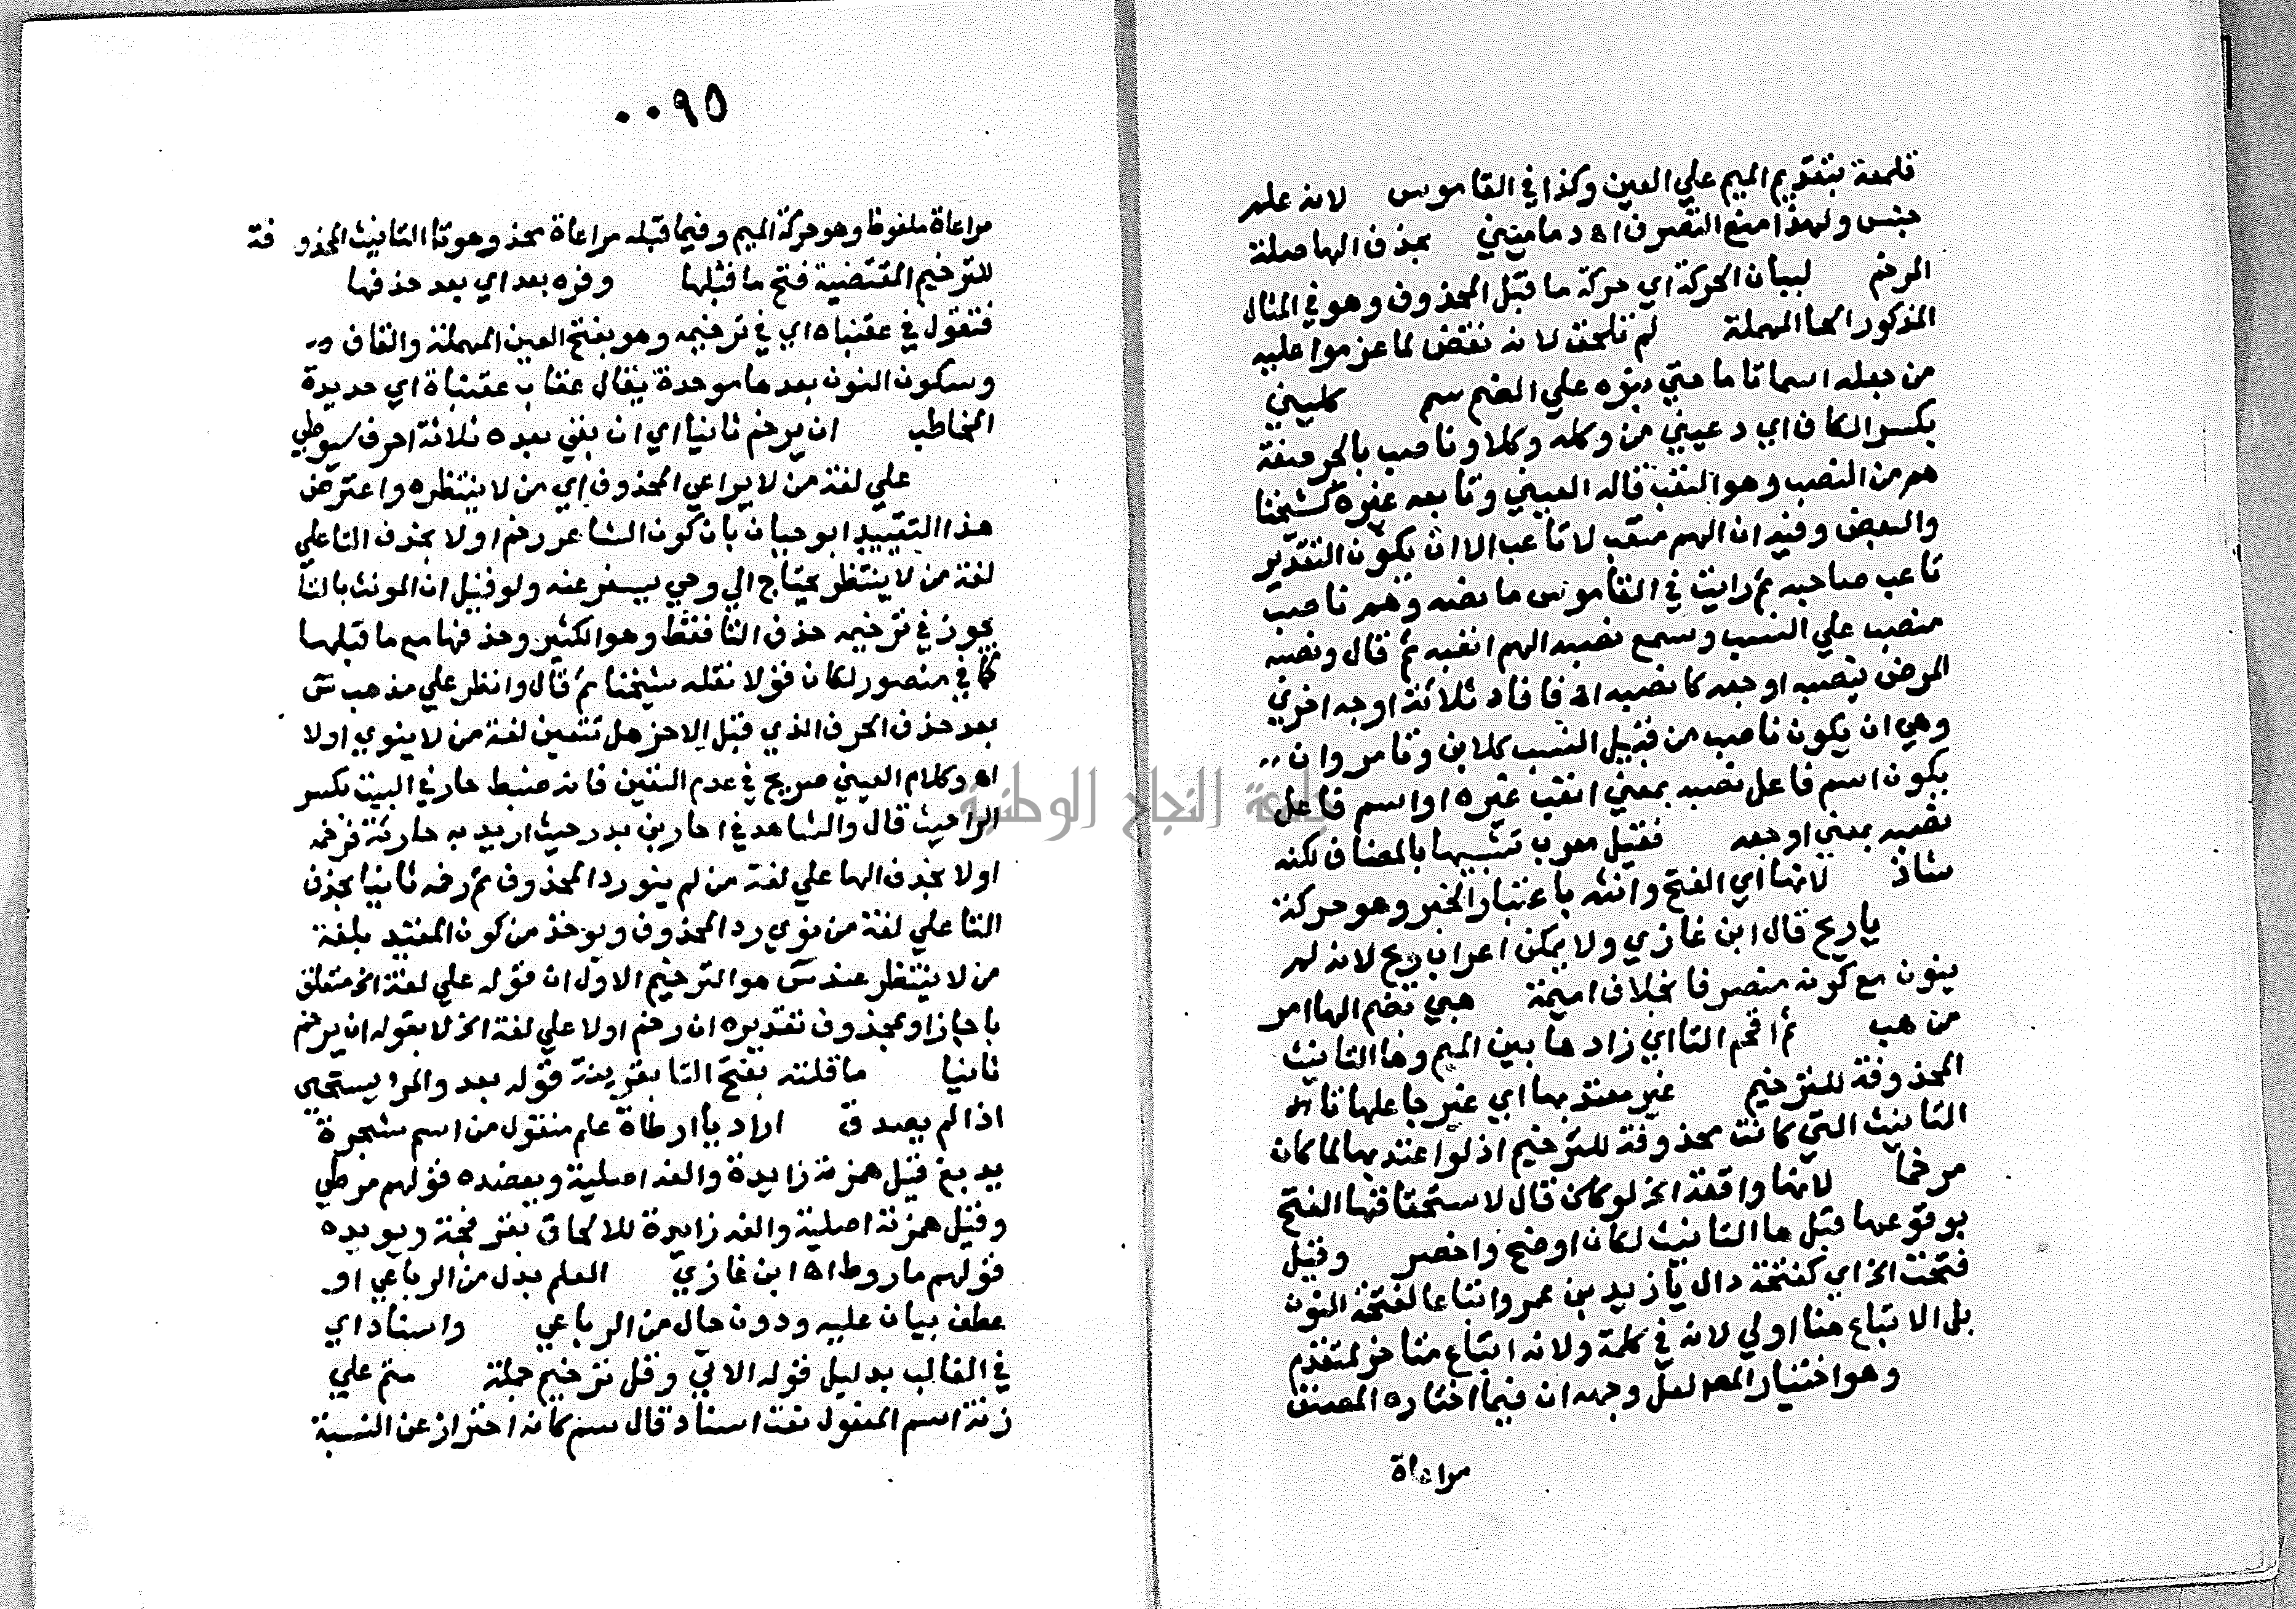 قلمعة بتقديم الميم علي العين وكذا في القاموس لانه علم
جنس ولهذا منع التصرف اه دماميني بحذف الها صلة
المرخم لبيان الحركة اي حركة ما قبل المحذوف وهو في المثال
المذكور الحا المهملة لم تلحق لانه نقض لما عزموا عليه
من جعله اسما تاما حتي بنوه علي الضم سم كليني
بكسر الكاف اي دعيني من وكله وكلا وناصب بالجر صفة
هم من النصب وهو التعب قاله العيني وتابعه غيره كشيخنا
والبعض وفيه ان الهم متعب لا تاعب الا ان يكون التقدير
تاعب صاحبه ثم رايت في القاموس ما نصه وهم ناصب
منصب علي النسب وسمع نصبه الهم اتعبه ثم قال ونصبه
المرض ينصبه اوجعه كانصبه اه فافاد ثلاثة اوجه اخري
وهي ان يكون ناصب من قبيل النسب كلابن وتامر وان
يكون اسم فاعل نصبه بمعني اتعب غيره او اسم فاعل
نصبه بمعني اوجعه فقيل معرب تشبيها بالمضاف لكنه
شاذ لانها اي الفتح وانثه باعتبار الخبر وهو حركة
ياريح قال ابن غازي ولا يمكن اعراب ريح لانه لم
ينون مع كونه منصرفا بخلاف اميمة هبي بضم الها امر
من هب ثم اقحم التا اي زادها بين الميم وها التانيث
المحذوفة للترخيم غير معتد بها اي غير جاعلها تا
التانيث التي كانت محذوفة للترخيم اذ لو اعتد بها لما كان
مرخما لانها واقعة الخ لو كان قال لاستحقاقها الفتح
بوقوعها قبل ها التانيث لكان اوضح واخصر وقيل
فتحت الخ اي كفتحة دال يا زيد بن عمرو اتباعا لفتحة النون
بل الاتباع هنا اولي لانه في كلمة ولانه اتباع متاخر لمتقدم
وهو اختيار المص لعل وجهه ان فيما اختاره المصنف
مراعاة
٠٠٩٥
مراعاة ملفوظ وهو حركة الميم وفيما قبله مراعاة محذوف وهو تا التانيث المحذوفة
للترخيم المقتضية فتح ما قبلها وفره بعد اي بعد حذفها
فتقول في عقنباه اي في ترخيمه وهو بفتح العين المهملة والقاف
وسكون النون بعدها موحدة يقال عقاب عقنباة اي حديدة
المخاطب ان يرخم ثانيا اي ان بقي بعده ثلاثة احرف سيوطي
علي لغة من لا يراعي المحذوف اي من لا ينتظره واعترض
هذا التقييد ابو حيان بان كون الشاعر رخم اولا بحذف التا علي
لغة من لا ينتظر يحتاج الي وحي يسفر عنه ولو قيل ان المونث بالتا
يجوز في ترخيمه حذف التا فقط وهو الكثير وحذفها مع ما قبلها
كما في منصور لكان قولا نقله شيخنا ثم قال وانظر علي مذهب س
بعد حذف الحرف الذي قبل الاخر هل تتعين لغة من لا ينوي اولا
اه وكلام العيني صريح في عدم التعين فانه ضبط حار في البيت بكسر
الرا حيث قال والشاهد في احار بن بدر حيث اريد به حارثة فرخمه
اولا بحذف الها علي لغة من لم ينو رد المحذوف ثم رخمه ثانيا بحذف
التا علي لغة من نوي رد المحذوف ويوخذ من كون المقيد بلغة
من لا ينتظر عند س هو الترخيم الاول ان قوله علي لغة الخ متعلق
باجاز او بمحذوف تقديره ان رخم اولا علي لغة الخ لا بقوله ان يرخم
ثانيا ما قلته بفتح التا بقرينة قوله بعد والمرء يستحي
اذا لم يصدق اراد يا ارطاة علم منقول من اسم شجرة
يدبغ قيل همزته زايدة والفه اصلية ويعضده قولهم مرطي
وقيل همزته اصلية والفه زايدة للالحاق بقرفحة ويويده
قولهم ماروط اه ابن غازي العلم بدل من الرباعي او
عطف بيان عليه ودون حال من الرباعي واسناد اي
في الغالب بدليل قوله الاتي وقل ترخيم جملة متم علي
زنة اسم المفعول نعت اسناد قال سم كانه احتراز عن النسبة